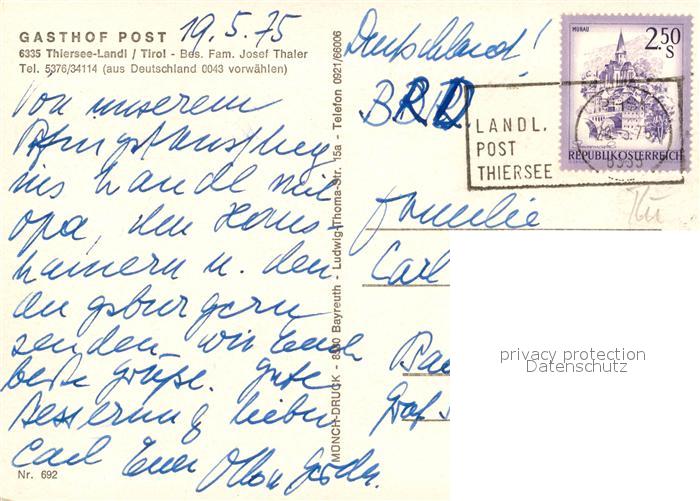 GASTHOF POST
19.5.75
6335 Thiersee-Landl / Tirol - Bes. Fam. Josef Thaler
Tel. 5376/34114 (aus Deutschland 0043 vorwählen)
Von unserem
Pfingstausflug
ins Landl mit
Opa, den Hans
hainern u. den
burgern
senden wir Euch
beste Grüße. Gute
Besserung lieber
Carl Euer
Nr. 692
MÜNCH-DRUCK - 8580 Bayreuth - Ludwig-Thoma-Str. 15a - Telefon 0921/66006
Deutschland!
BRD
MURAU
2.50 S
REPUBLIK ÖSTERREICH
LANDL.
POST
THIERSEE
Familie
Carl
Graf
privacy protection
Datenschutz